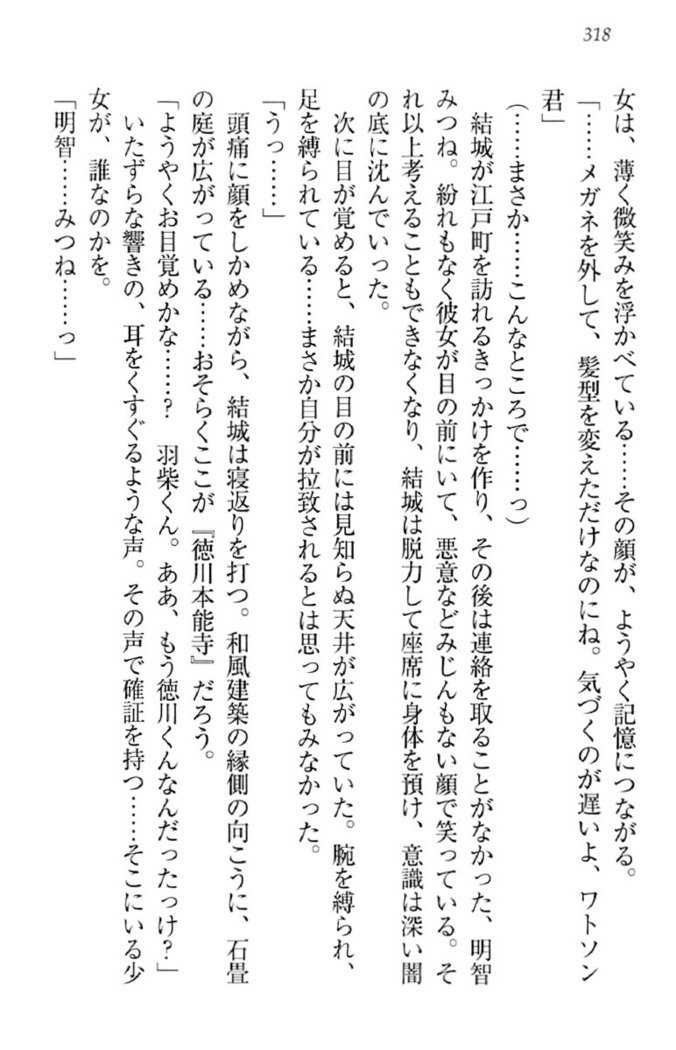 318
女は、薄く微笑みを浮かべている……その顔が、ようやく記憶につながる。
「……メガネを外して、髪型を変えただけなのにね。気づくのが遅いよ、ワトソン
君」
(……まさか……こんなところで……っ)
結城が江戸町を訪れるきっかけを作り、その後は連絡を取ることがなかった、明智
みつね。紛れもなく彼女が目の前にいて、悪意などみじんもない顔で笑っている。そ
れ以上考えることもできなくなり、結城は脱力して座席に身体を預け、意識は深い闇
の底に沈んでいった。
次に目が覚めると、結城の目の前には見知らぬ天井が広がっていた。腕を縛られ、
足を縛られている……まさか自分が拉致されるとは思ってもみなかった。
「うっ……」
頭痛に顔をしかめながら、結城は寝返りを打つ。和風建築の縁側の向こうに、石畳
の庭が広がっている……おそらくここが『徳川本能寺』だろう。
「ようやくお目覚めかな……？　羽柴くん。ああ、もう徳川くんなんだったっけ？」
いたずらな響きの、耳をくすぐるような声。その声で確証を持つ……そこにいる少
女が、誰なのかを。
「明智……みつね……っ」